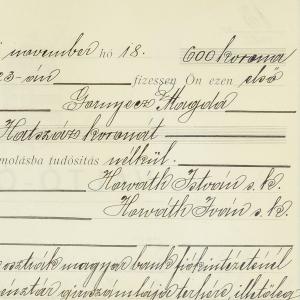 november hó 18. 600 korona
23-án fizessen Ön ezen első
Gonyecz Magda
Hatszáz koronát
molásba tudósitás nélkül.
Horváth István s. k.
Horváth Iván s. k.
osztrák magyar bank fiókintézeténél
pénztár girószámlája terhére illetőleg